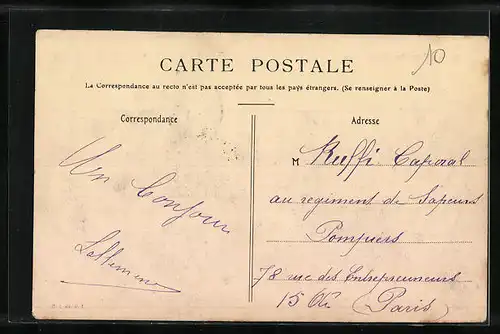 10
CARTE POSTALE
La Correspondance au recto n'est pas acceptée par tous les pays étrangers. (Se renseigner à la Poste)
Correspondance
Un bonjour
Adresse
M Ruffi Caporal
au regiment de Sapeurs
Pompiers
78 rue des Entrepreneurs
15
Paris